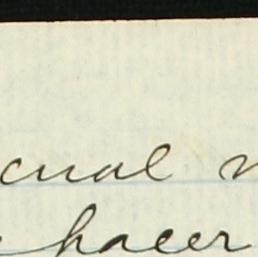 cual
hacer